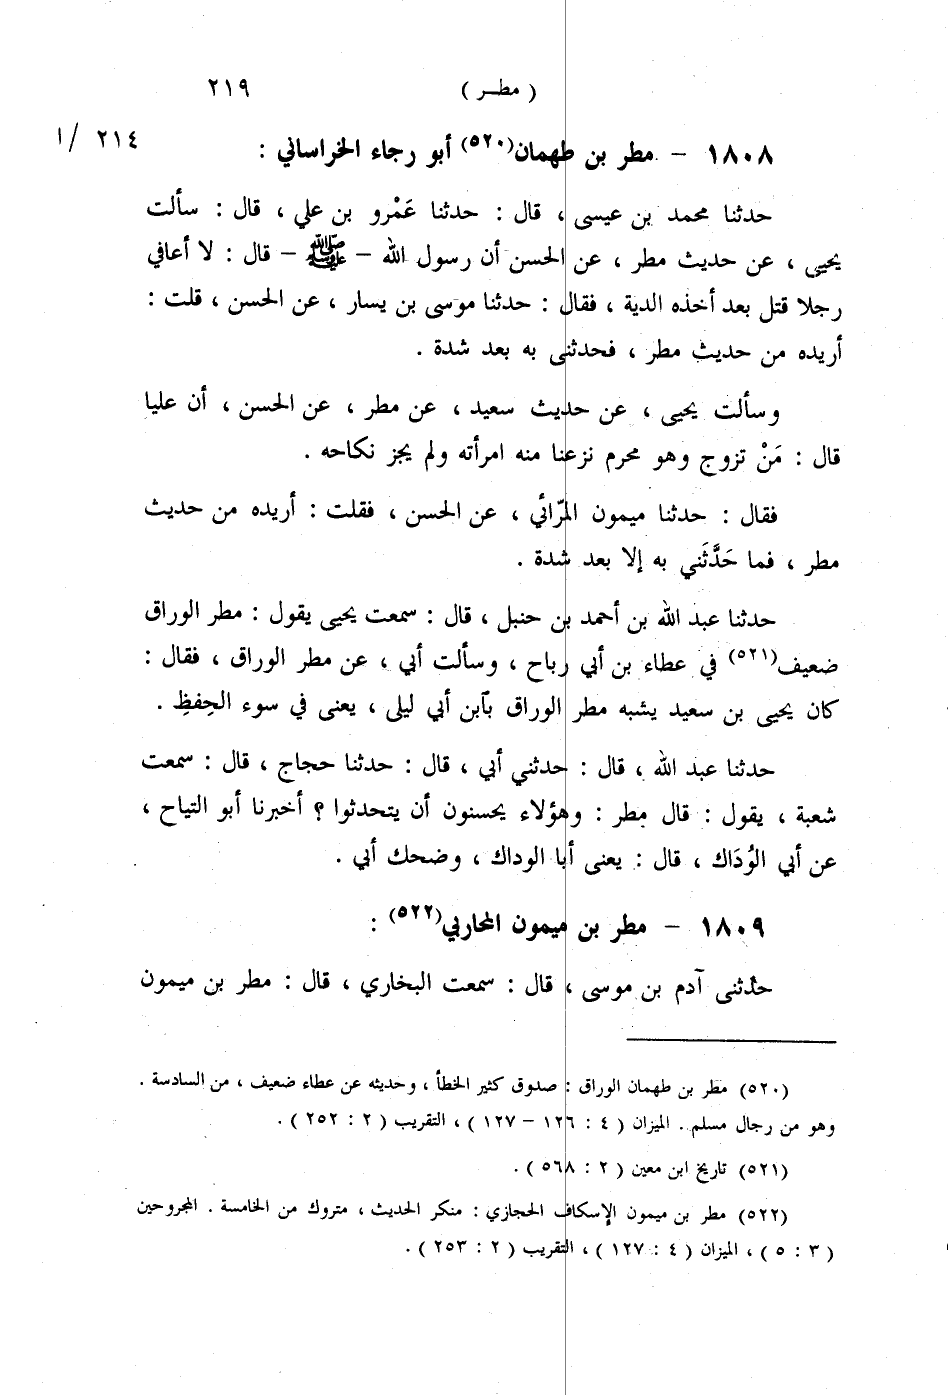 ( مطـر )
٢١٩
٢١٤ /١
١٨٠٨ – مطر بن طهمان(٥٢٠) أبو رجاء الخراساني :
حدثنا محمد بن عيسى ، قال : حدثنا عَمْرو بن علي ، قال : سألت
يحيى ، عن حديث مطر ، عن الحسن أن رسول الله – ﷺ – قال : لا أعافي
رجلا قتل بعد أخذه الدية ، فقال : حدثنا موسى بن يسار ، عن الحسن ، قلت :
أريده من حديث مطر ، فحدثنى به بعد شدة .
وسألت يحيى ، عن حديث سعيد ، عن مطر ، عن الحسن ، أن عليا
قال : مَنْ تزوج وهو محرم نزعنا منه امرأته ولم يجز نكاحه .
فقال : حدثنا ميمون المرّائي ، عن الحسن ، فقلت : أريده من حديث
مطر ، فما حَدَّثَني به إلا بعد شدة .
حدثنا عبد الله بن أحمد بن حنبل ، قال : سمعت يحيى يقول : مطر الوراق
ضعيف(٥٢١) في عطاء بن أبي رباح ، وسألت أبي ، عن مطر الوراق ، فقال :
كان يحيى بن سعيد يشبه مطر الوراق بآبن أبي ليلى ، يعنى في سوء الحِفظِ .
حدثنا عبد الله ، قال : حدثني أبي ، قال : حدثنا حجاج ، قال : سمعت
شعبة ، يقول : قال مطر : وهؤلاء يحسنون أن يتحدثوا ؟ أخبرنا أبو التياح ،
عن أبي الوُدَاك ، قال : يعنى أبا الوداك ، وضحك أبي .
١٨٠٩ – مطر بن ميمون المحاربي(٥٢٢) :
حدثنى آدم بن موسى ، قال : سمعت البخاري ، قال : مطر بن ميمون
(٥٢٠) مطر بن طهمان الوراق : صدوق كثير الخطأ ، وحديثه عن عطاء ضعيف ، من السادسة .
وهو من رجال مسلم . الميزان ( ٤ : ١٢٦ – ١٢٧ ) ، التقريب ( ٢ : ٢٥٢ ) .
(٥٢١) تاريخ ابن معين ( ٢ : ٥٦٨ ) .
(٥٢٢) مطر بن ميمون الإسكاف الحجازي : منكر الحديث ، متروك من الخامسة . المجروحين
( ٣ : ٥ ) ، الميزان ( ٤ : ١٢٧ ) ، التقريب ( ٢ : ٢٥٣ ) .